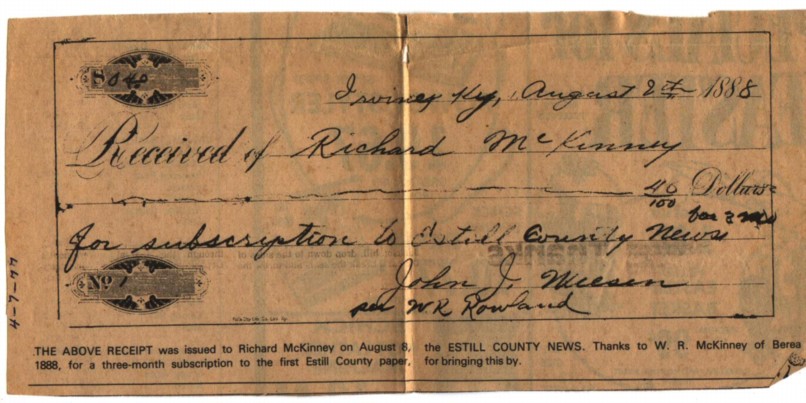 $ 0.40
Irvine, Ky, August 8th 1888
Received of Richard McKinney
40/100 Dollars
for 3 mos
for subscription to Estill County News
No 1
John J.
per W R Rowland
4-7-77
THE ABOVE RECEIPT was issued to Richard McKinney on August 8, 1888, for a three-month subscription to the first Estill County paper,
the ESTILL COUNTY NEWS. Thanks to W. R. McKinney of Berea for bringing this by.